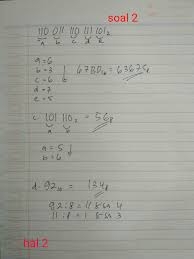 soal 2
110 011 110 111 101₂
a b c d e
a = 6
b = 3
c = 6
d = 7
e = 5
67BD₁₆ = 63675₈
c. 101 110₂ = 56₈
a b
a = 5
b = 6
d. 92₁₀ = 134₈
92 : 8 = 11 sisa 4
11 : 8 = 1 sisa 3
hal 2